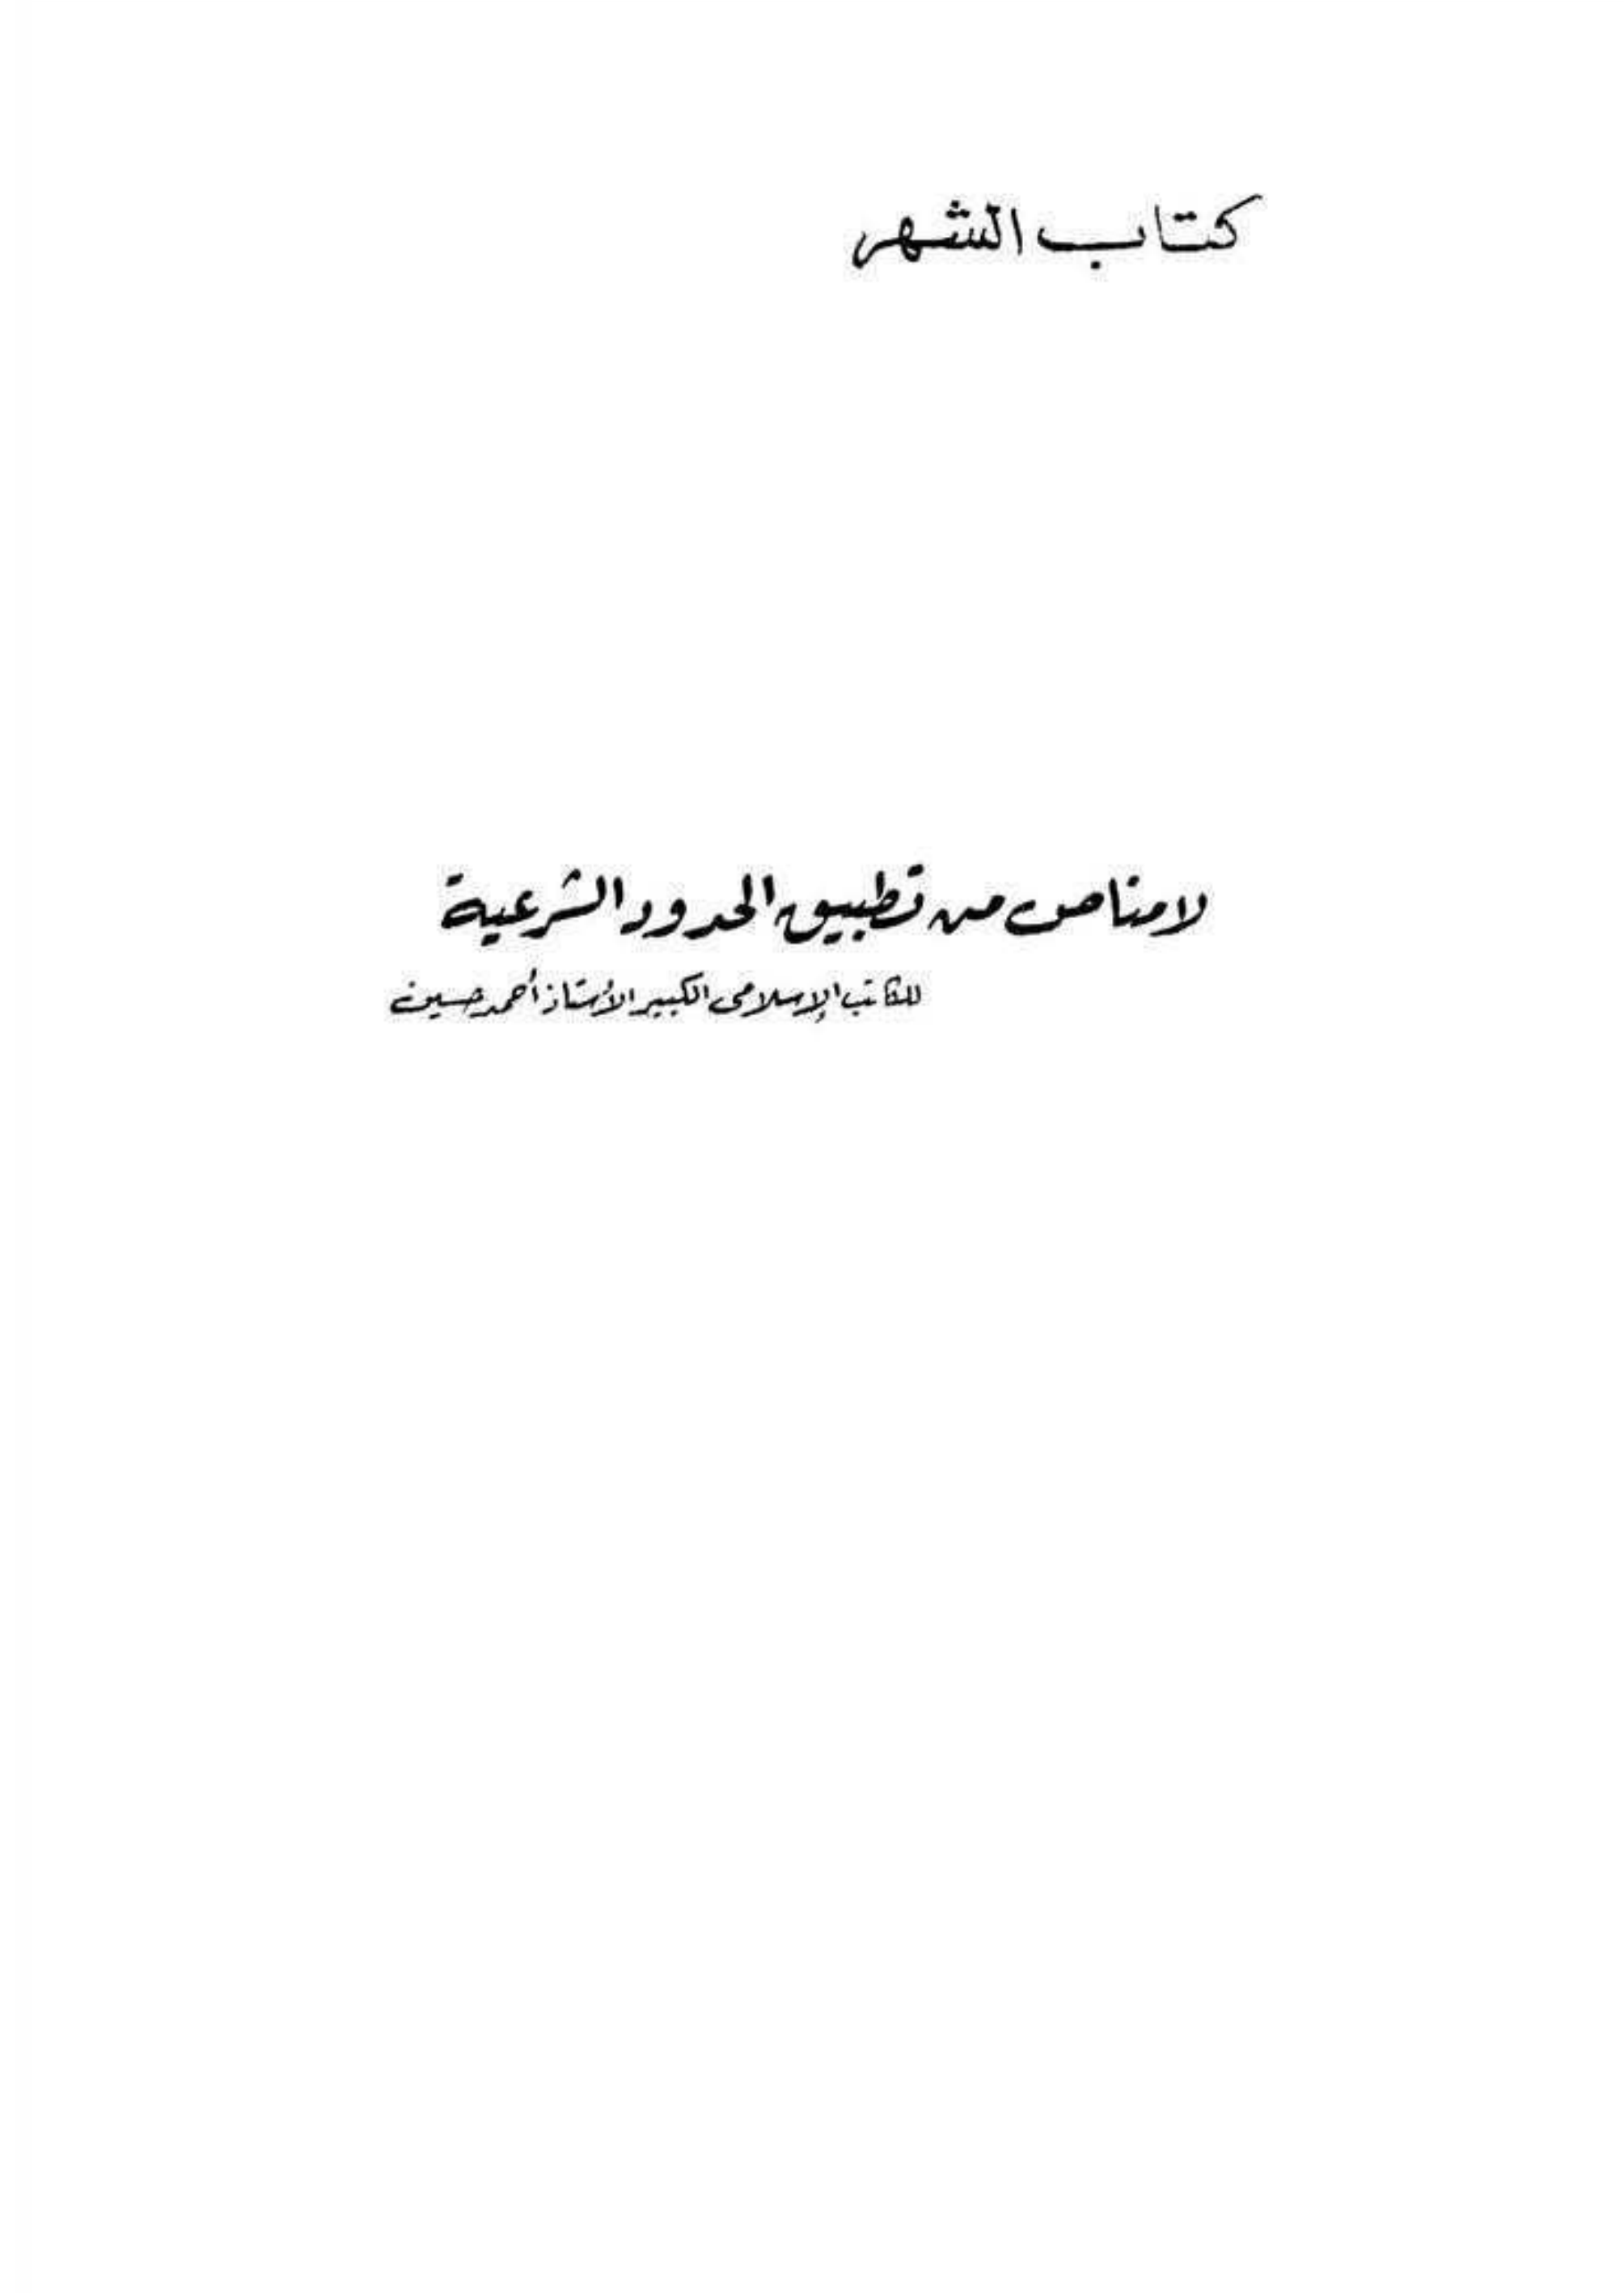 كتاب الشهر
لا مناص من تطبيق الحدود الشرعية
للكاتب الإسلامى الكبير الأستاذ أحمد حسين